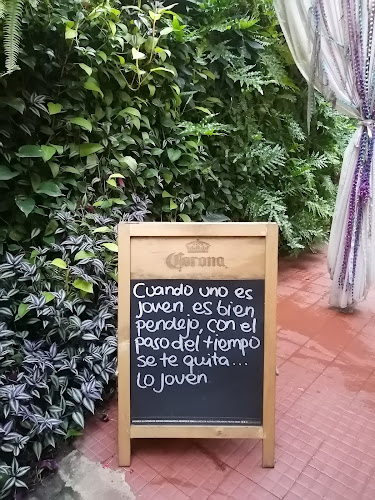 Corona
Cuando uno es
joven es bien
pendejo, con el
paso del tiempo
se te quita...
lo joven